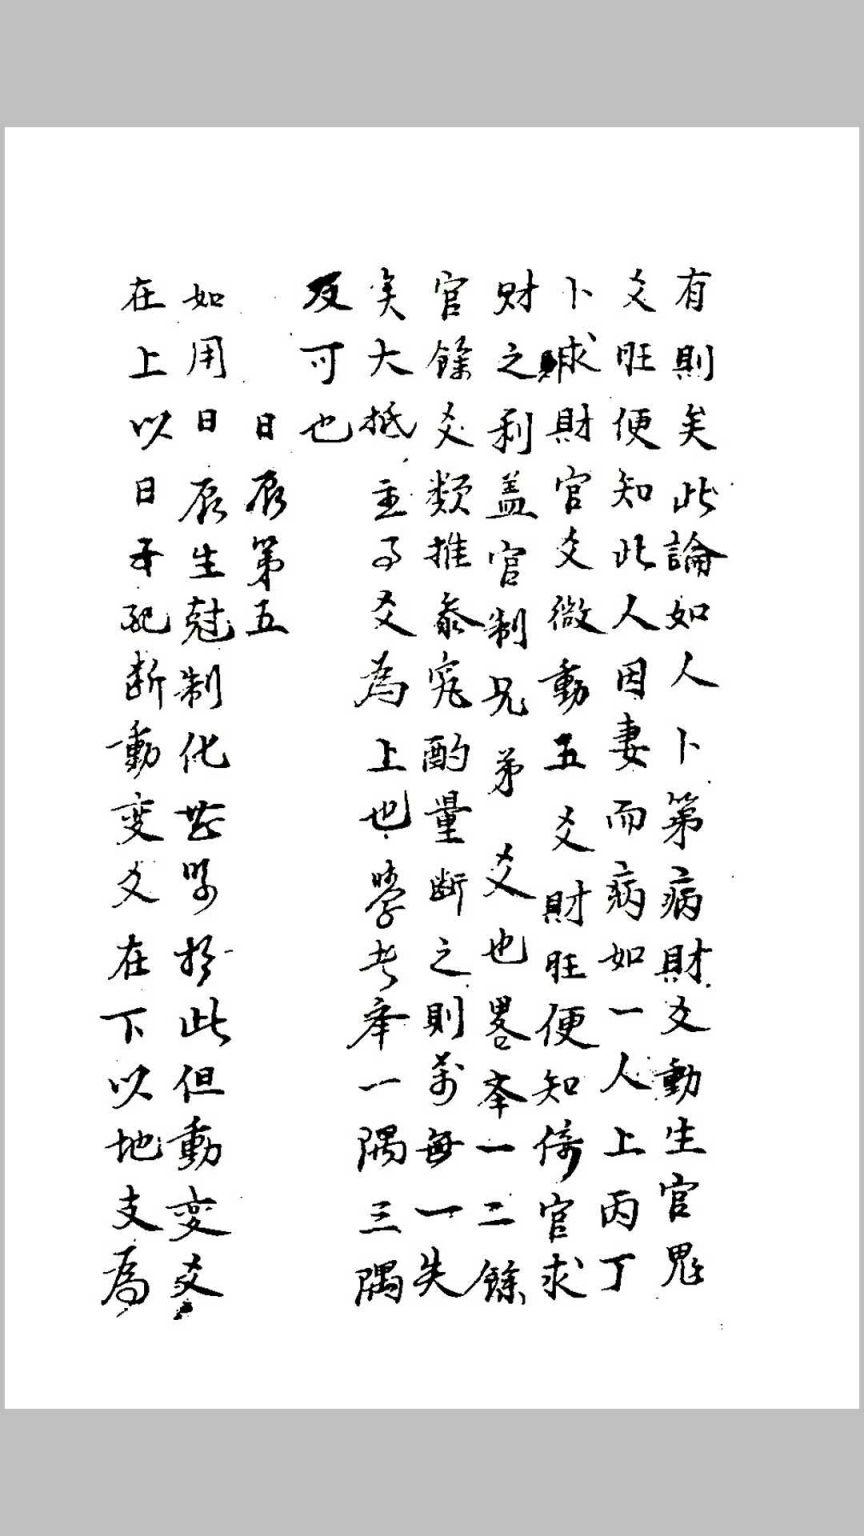 有則矣此論如人卜第病財爻動生官鬼
爻旺便知此人因妻而病如一人上丙丁
卜求財官爻微動五爻財旺便知倚官求
财之利盖官制兄弟爻也畧举一二餘
官餘爻類推叅究酌量断之則萬每一失
矣大抵主事爻為上也學者举一隅三隅
反可也
日辰第五
如用日辰生尅制化甚異於此但動变爻
在上以日干配断動变爻在下以地支為